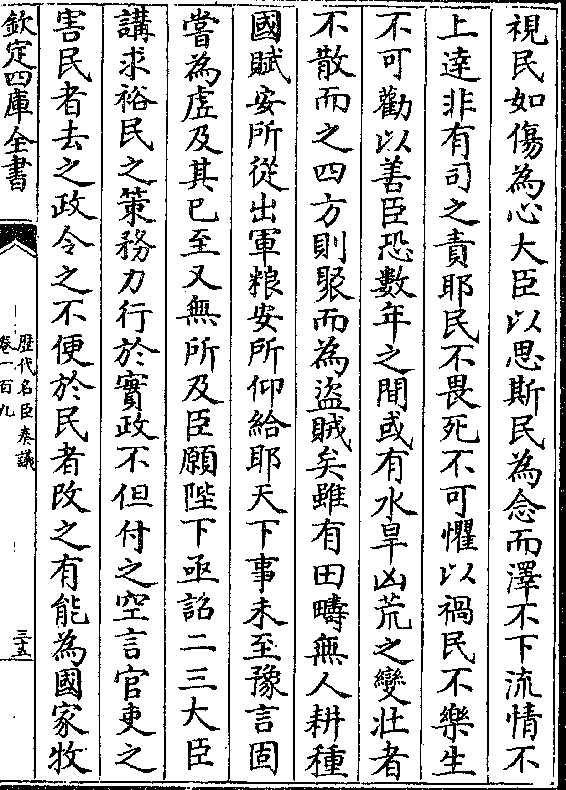 視民如傷為心大臣以思斯民為念而澤不下流情不
上達非有司之責耶民不畏死不可懼以禍民不樂生
不可勸以善臣恐數年之間或有水旱凶荒之變壯者
不散而之四方則聚而為盜賊矣雖有田疇無人耕種
國賦安所從出軍粮安所仰給耶天下事未至豫言固
嘗為虗及其已至又無所及臣願陛下亟詔二三大臣
講求裕民之策務力行於實政不但付之空言官吏之
害民者去之政令之不便於民者改之有能為國家牧
欽定四庫全書
歷代名臣奏議
卷一百九
三十五